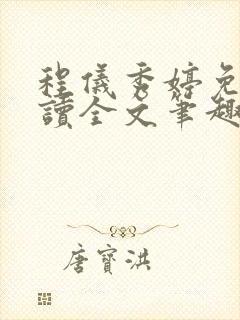 程儀秀婷免
讀全文筆趣
唐寶洪